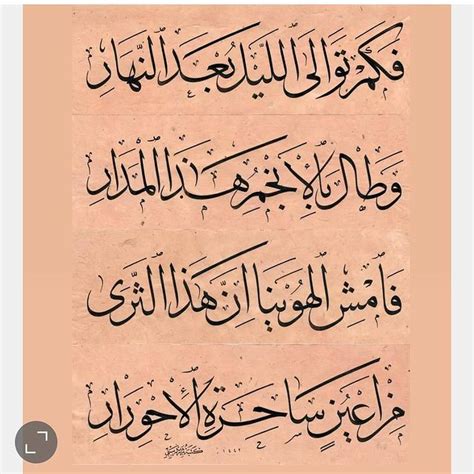 فَكَمْ تَوَالَى اللَّيْلُ بَعْدَ النَّهَارِ
وَطَالَ بِالأَنْجُمِ هَذَا الْمَدَارِ
فَامْشِ الْهُوَيْنَا إِنَّ هَذَا الثَّرَى
مِنْ أَعْيُنٍ سَاحِرَةِ الأَحْوِرَارِ
١٤٤٢